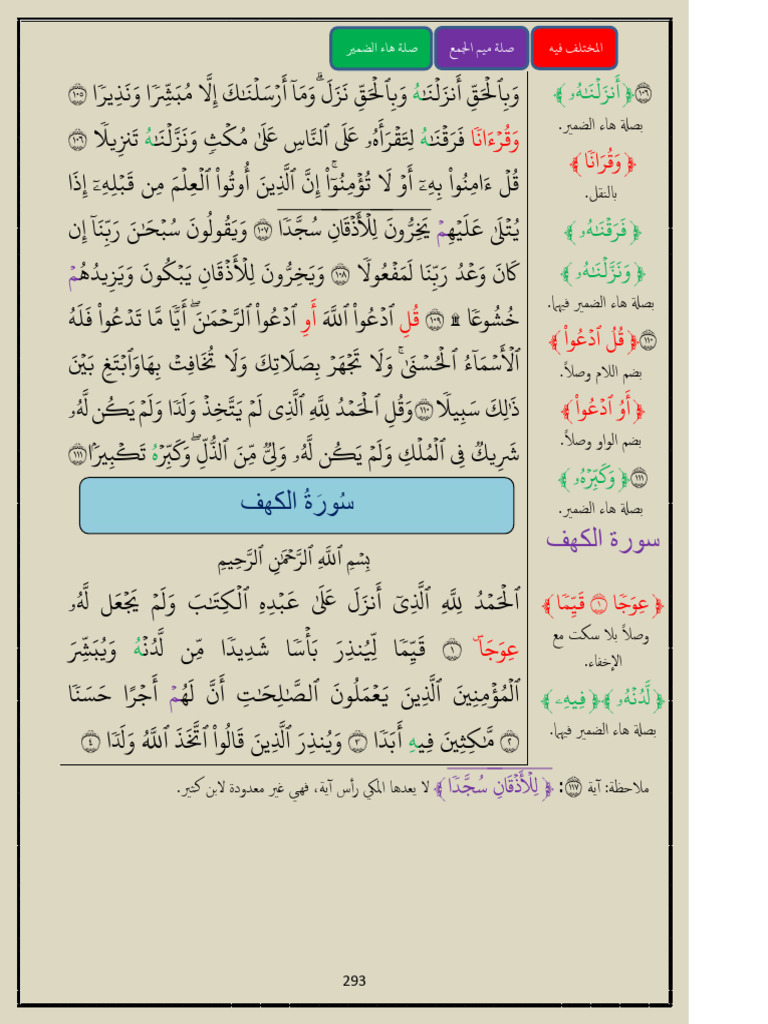 المختلف فيه
صلة ميم الجمع
صلة هاء الضمير
وَبِٱلۡحَقِّ أَنزَلۡنَٰهُ وَبِٱلۡحَقِّ نَزَلَۗ وَمَآ أَرۡسَلۡنَٰكَ إِلَّا مُبَشِّرٗا وَنَذِيرٗا ١٠٥
وَقُرۡءَانٗا فَرَقۡنَٰهُ لِتَقۡرَأَهُۥ عَلَى ٱلنَّاسِ عَلَىٰ مُكۡثٖ وَنَزَّلۡنَٰهُ تَنزِيلٗا ١٠٦
قُلۡ ءَامِنُواْ بِهِۦٓ أَوۡ لَا تُؤۡمِنُوٓاْۚ إِنَّ ٱلَّذِينَ أُوتُواْ ٱلۡعِلۡمَ مِن قَبۡلِهِۦٓ إِذَا
يُتۡلَىٰ عَلَيۡهِمۡ يَخِرُّونَ لِلۡأَذۡقَانِ سُجَّدٗا ١٠٧ وَيَقُولُونَ سُبۡحَٰنَ رَبِّنَآ إِن
كَانَ وَعۡدُ رَبِّنَا لَمَفۡعُولٗا ١٠٨ وَيَخِرُّونَ لِلۡأَذۡقَانِ يَبۡكُونَ وَيَزِيدُهُمۡ
خُشُوعٗا ۩ ١٠٩ قُلِ ٱدۡعُواْ ٱللَّهَ أَوِ ٱدۡعُواْ ٱلرَّحۡمَٰنَۖ أَيّٗا مَّا تَدۡعُواْ فَلَهُ
ٱلۡأَسۡمَآءُ ٱلۡحُسۡنَىٰۚ وَلَا تَجۡهَرۡ بِصَلَاتِكَ وَلَا تُخَافِتۡ بِهَا وَٱبۡتَغِ بَيۡنَ
ذَٰلِكَ سَبِيلٗا ١١٠ وَقُلِ ٱلۡحَمۡدُ لِلَّهِ ٱلَّذِي لَمۡ يَتَّخِذۡ وَلَدٗا وَلَمۡ يَكُن لَّهُۥ
شَرِيكٞ فِي ٱلۡمُلۡكِ وَلَمۡ يَكُن لَّهُۥ وَلِيّٞ مِّنَ ٱلذُّلِّۖ وَكَبِّرۡهُ تَكۡبِيرَۢا ١١١
سُورَةُ الكهف
بِسۡمِ ٱللَّهِ ٱلرَّحۡمَٰنِ ٱلرَّحِيمِ
ٱلۡحَمۡدُ لِلَّهِ ٱلَّذِيٓ أَنزَلَ عَلَىٰ عَبۡدِهِ ٱلۡكِتَٰبَ وَلَمۡ يَجۡعَل لَّهُۥ
عِوَجَاۜ ١ قَيِّمٗا لِّيُنذِرَ بَأۡسٗا شَدِيدٗا مِّن لَّدُنۡهُ وَيُبَشِّرَ
ٱلۡمُؤۡمِنِينَ ٱلَّذِينَ يَعۡمَلُونَ ٱلصَّٰلِحَٰتِ أَنَّ لَهُمۡ أَجۡرًا حَسَنٗا
٢ مَّٰكِثِينَ فِيهِ أَبَدٗا ٣ وَيُنذِرَ ٱلَّذِينَ قَالُواْ ٱتَّخَذَ ٱللَّهُ وَلَدٗا ٤
١٠٦ ﴿أَنزَلۡنَٰهُۥ﴾
بصلة هاء الضمير.
﴿وَقُرَانٗا﴾
بالنقل.
﴿فَرَقۡنَٰهُۥ﴾
﴿وَنَزَّلۡنَٰهُۥ﴾
بصلة هاء الضمير فيهما.
١١٠ ﴿قُلُ ٱدۡعُواْ﴾
بضم اللام وصلاً.
﴿أَوُ ٱدۡعُواْ﴾
بضم الواو وصلاً.
١١١ ﴿وَكَبِّرۡهُۥ﴾
بصلة هاء الضمير.
سورة الكهف
﴿عِوَجٗا ١ قَيِّمٗا﴾
وصلاً بلا سكت مع
الإخفاء.
﴿لَّدُنۡهُۥ﴾﴿فِيهِۦ﴾
بصلة هاء الضمير فيهما.
ملاحظة: آية ١١٧: ﴿لِلۡأَذۡقَانِ سُجَّدٗا﴾ لا يعدها المكي رأس آية، فهي غير معدودة لابن كثير.
293